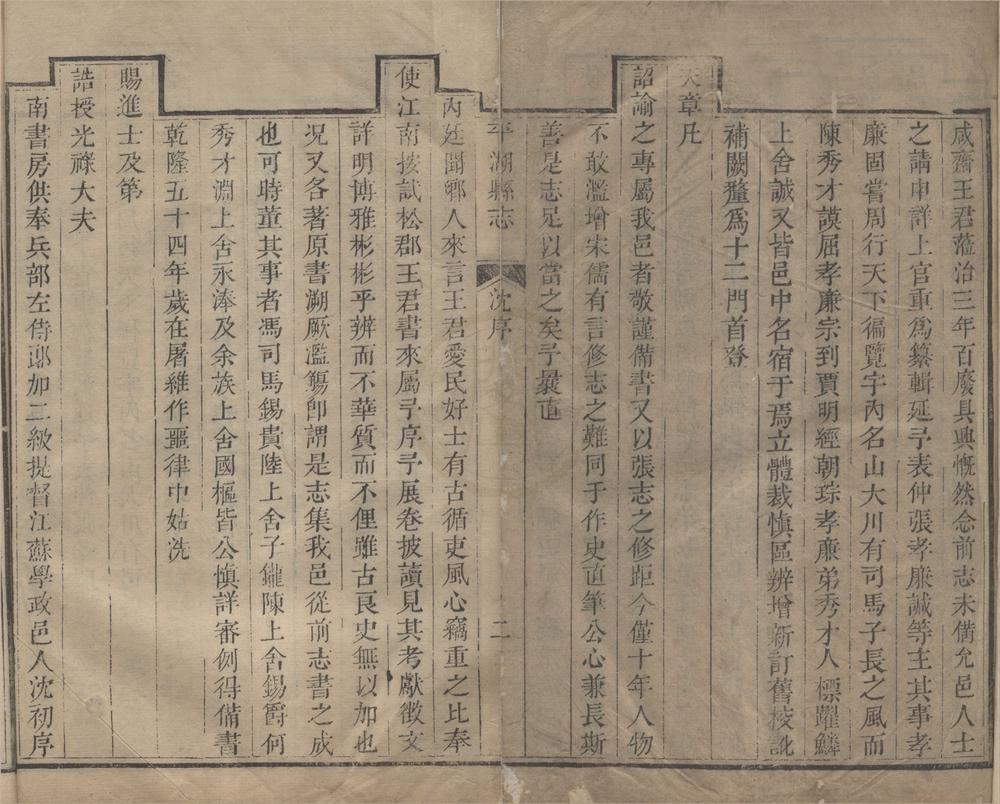 咸齋王君蒞治三年百廢具興慨然念前志未備允邑人士
之請申詳上官重為纂輯延予表仲張孝廉誠等主其事孝
廉固嘗周行天下徧覽宇內名山大川有司馬子長之風而
陳秀才謨屈孝廉宗到賈明經朝琮孝廉弟秀才人標躍鱗
上舍誠又皆邑中名宿于焉立體裁慎區辨增新訂舊棱訛
補闕釐為十二門首登
天章凡
詔諭之專屬我邑者敬謹備書又以張志之修距今僅十年人物
不敢濫增宋儒有言修志之難同于作史直筆公心兼長斯
善是志足以當之矣予曩直
平湖縣志 沈序 二
內廷聞鄉人來言王君愛民好士有古循吏風心竊重之比奉
使江南按試松郡王君書來屬予序予展卷披讀見其考獻徵文
詳明博雅彬彬乎辨而不華質而不俚雖古良史無以加也
況又各著原書溯厥濫觴即謂是志集我邑從前志書之成
也可時董其事者馮司馬錫貴陸上舍子鑨陳上舍錫爵何
秀才淵上舍永溙及余族上舍國樞皆公慎詳審例得備書
乾隆五十四年歲在屠維作噩律中姑洗
賜進士及第
誥授光祿大夫
南書房供奉兵部左侍郎加二級提督江蘇學政邑人沈初序